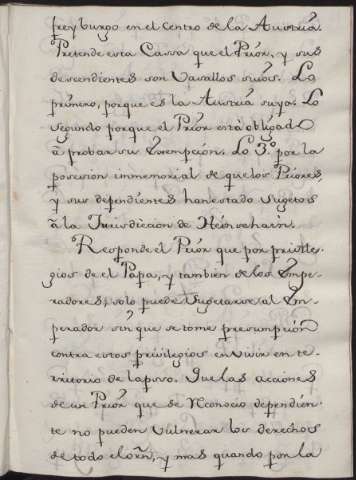 freyburgo en el Centro de la Austria.
Pretende esta Cassa que el Prior, y sus
descendientes son Vasallos suios. Lo
primero, porque es la Austria suya. Lo
segundo porque el Prior està obligado
à probar su Exempcion. Lo 3.º por la
posesion immemorial de que los Priores,
y sus dependientes han estado sugetos
à la Jurisdiccion de Heinsehaim.
Responde el Prior que por privile-
gios de el Papa, y tambien de los Empe-
radores, solo puede sugetarse al Em-
perador sin que se tome presumpcion
contra estos privilegios en vivir en te-
rritorio de la psso. Que las acciones
de un Prior que se reconocio dependien-
te no pueden vulnerar los derechos
de todo el orñ, y mas quando por la